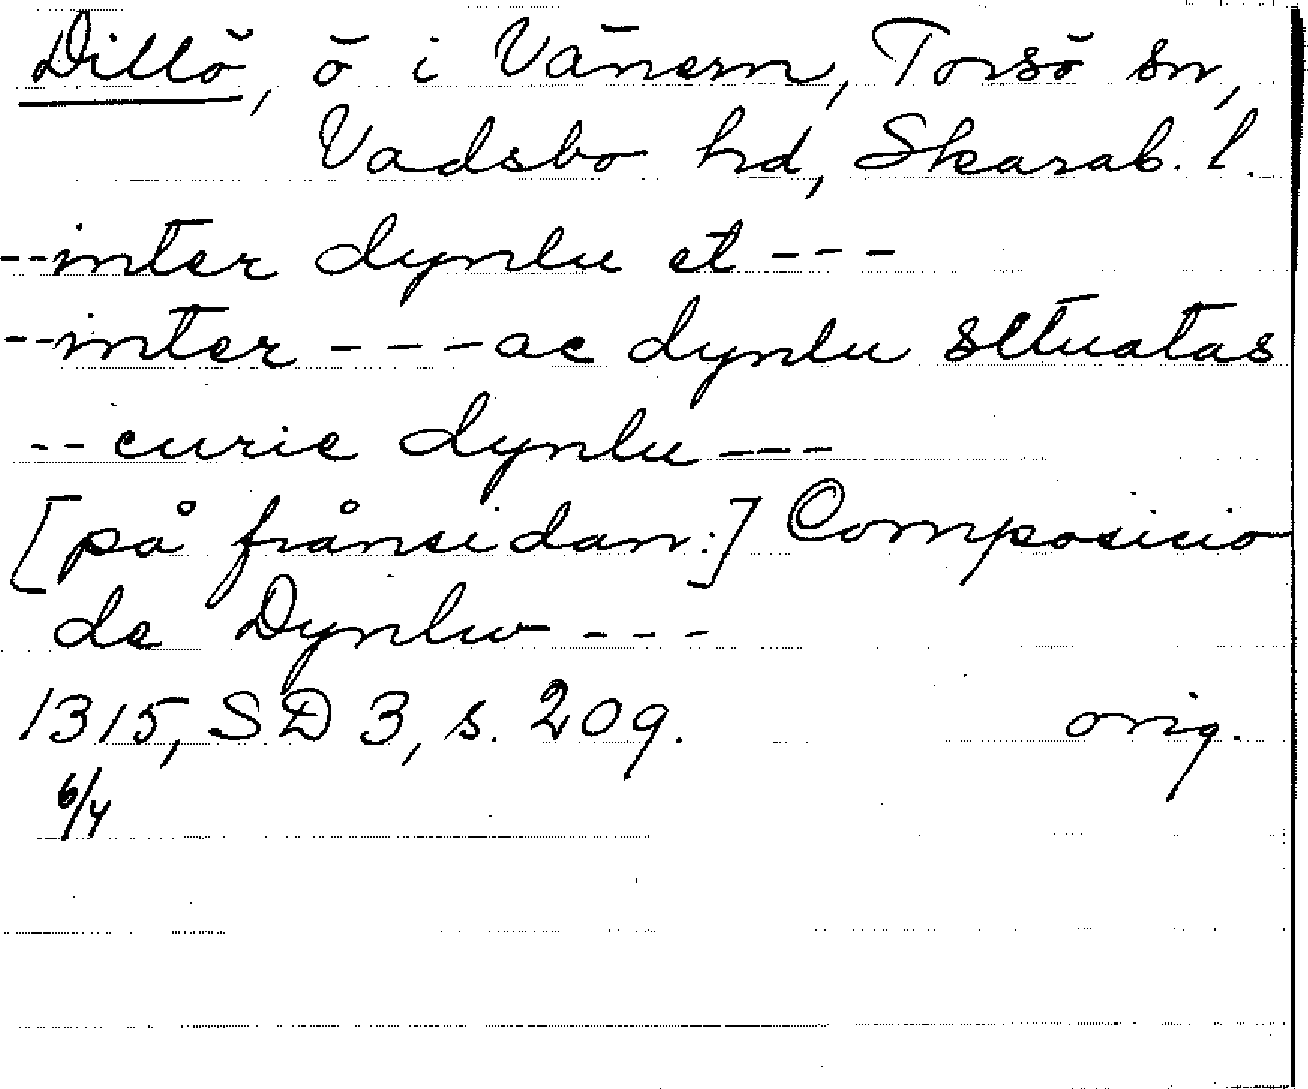 Dillö, ö i Vänern, Torsö sn,
Vadsbo hd, Skarab. l.
--inter dynlu et ---
--inter ---ac dynlu situatas
--curie dynlu ---
[på frånsidan:] Composicio
de Dynlw ---
1315, SD 3, s. 209. orig.
6/4